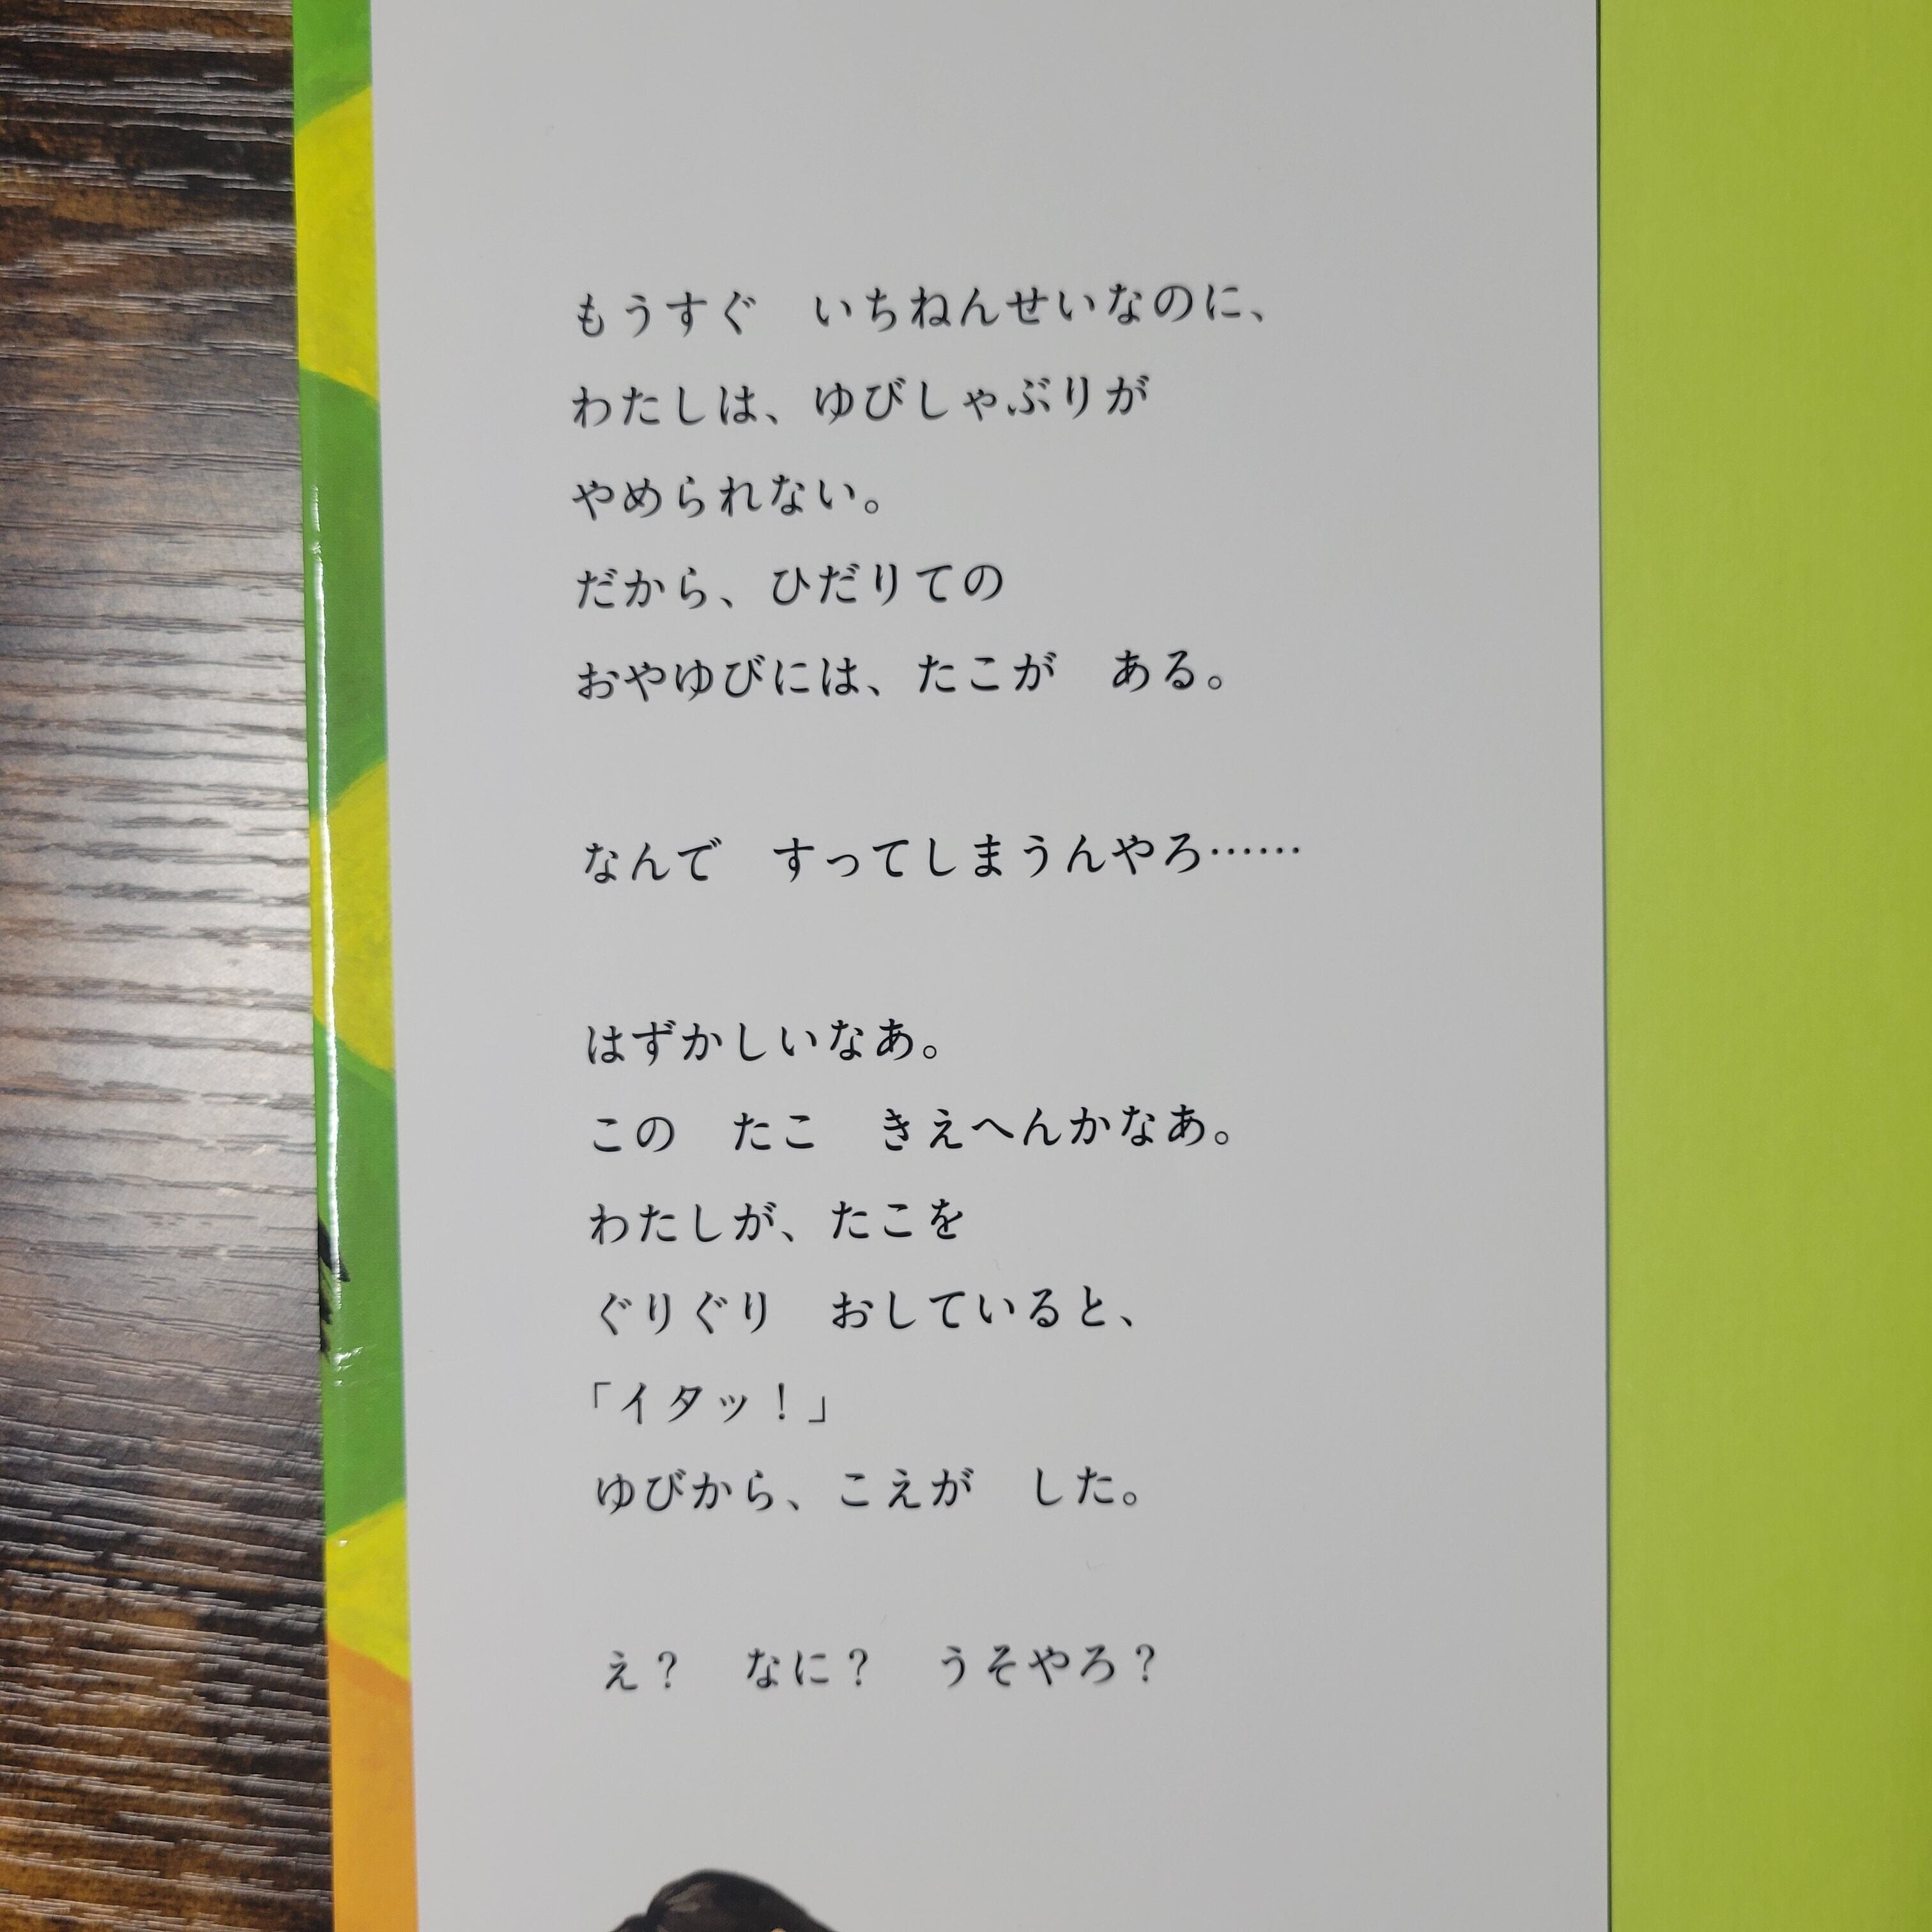 もうすぐ　いちねんせいなのに、
わたしは、ゆびしゃぶりが
やめられない。
だから、ひだりての
おやゆびには、たこが　ある。
なんで　すってしまうんやろ……
はずかしいなあ。
この　たこ　きえへんかなあ。
わたしが、たこを
ぐりぐり　おしていると、
「イタッ！」
ゆびから、こえが　した。
え？　なに？　うそやろ？